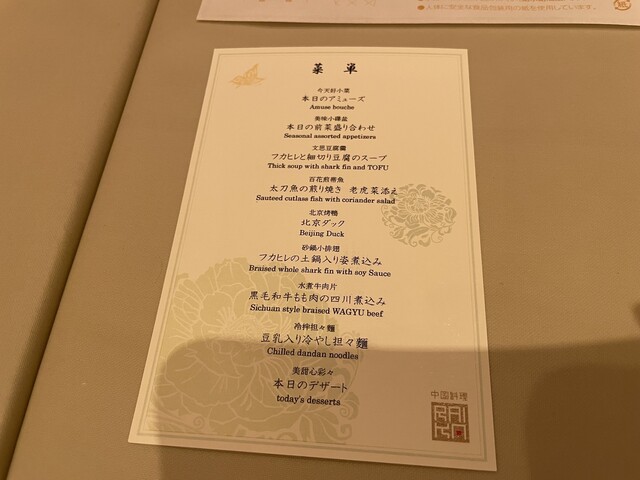 ●人体に安全な食品包装用の紙を使用しています。
菜 単
今天好小菜
本日のアミューズ
Amuse bouche
美味小碟盆
本日の前菜盛り合わせ
Seasonal assorted appetizers
文思豆腐羹
フカヒレと細切り豆腐のスープ
Thick soup with shark fin and TOFU
百花煎帯魚
太刀魚の煎り焼き 老虎菜添え
Sauteed cutlass fish with coriander salad
北京烤鴨
北京ダック
Beijing Duck
砂鍋小排翅
フカヒレの土鍋入り姿煮込み
Braised whole shark fin with soy Sauce
水煮牛肉片
黒毛和牛もも肉の四川煮込み
Sichuan style braised WAGYU beef
冷拌担々麺
豆乳入り冷やし担々麺
Chilled dandan noodles
美甜心彩々
本日のデザート
today's desserts
中国料理
RAI
KA